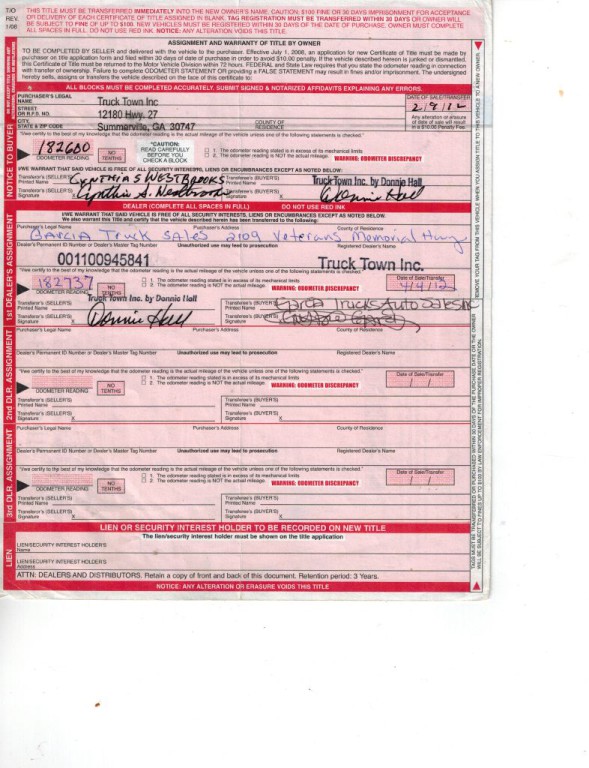 T/O
REV.
1/06
THIS TITLE MUST BE TRANSFERRED IMMEDIATELY INTO THE NEW OWNER'S NAME. CAUTION: $100 FINE OR 30 DAYS IMPRISONMENT FOR ACCEPTANCE
OR DELIVERY OF EACH CERTIFICATE OF TITLE ASSIGNED IN BLANK. TAG REGISTRATION MUST BE TRANSFERRED WITHIN 30 DAYS OR OWNER WILL
BE SUBJECT TO FINE OF UP TO $100. NEW VEHICLES MUST BE REGISTERED WITHIN 30 DAYS OF THE DATE OF PURCHASE. OWNER MUST COMPLETE
ALL SPACES IN FULL. DO NOT USE RED INK. NOTICE: ANY ALTERATION VOIDS THIS TITLE.
ASSIGNMENT AND WARRANTY OF TITLE BY OWNER
TO BE COMPLETED BY SELLER and delivered with the vehicle to the purchaser. Effective July 1, 2006, an application for new Certificate of Title must be made by
purchaser on title application form and filed within 30 days of date of purchase in order to avoid $10.00 penalty. If the vehicle described hereon is junked or dismantled,
this Certificate of Title must be returned to the Motor Vehicle Division within 72 hours. FEDERAL and State Law requires that you state the odometer reading in connection
with transfer of ownership. Failure to complete ODOMETER STATEMENT OR providing a FALSE STATEMENT may result in fines and/or imprisonment. The undersigned
hereby sells, assigns or transfers the vehicle described on the face of this certificate to:
ALL BLOCKS MUST BE COMPLETED ACCURATELY. SUBMIT SIGNED & NOTARIZED AFFIDAVITS EXPLANING ANY ERRORS.
NOTICE TO BUYER
PURCHASER'S LEGAL
NAME
Truck Town Inc
DATE OF SALE/TRANSFER
2/9/12
STREET
OR R.F.D. NO.
12180 Hwy. 27
Any alteration of
date of sale will result
in a $10.00 Penalty Fee
CITY,
STATE & ZIP CODE
Summerville, GA 30747
COUNTY OF
RESIDENCE
"I/we certify to the best of my knowledge that the odometer reading is the actual mileage of the vehicle unless one of the following statements is checked."
182600
ODOMETER READING
NO
TENTHS
"CAUTION:
READ CAREFULLY
BEFORE YOU
CHECK A BLOCK
1. The odometer reading stated is in excess of its mechanical limits
2. The odometer reading is NOT the actual mileage.
WARNING: ODOMETER DISCREPANCY
I/WE WARRANT THAT SAID VEHICLE IS FREE OF ALL SECURITY INTERESTS, LIENS OR ENCUMBRANCES EXCEPT AS NOTED BELOW:
Transferor's (SELLER'S)
Printed Name
CYNTHIA S WESTBROOKS
Transferee's (BUYER'S)
Printed Name
Truck Town Inc. by Donnie Hall
Transferor's (SELLER'S)
Signature
Cynthia S. Westbrooks
Transferee's (BUYER'S)
Signature
Donnie Hall
DEALER (COMPLETE ALL SPACES IN FULL)
DO NOT USE RED INK
1st DEALER'S ASSIGNMENT
I/WE WARRANT THAT SAID VEHICLE IS FREE OF ALL SECURITY INTERESTS, LIENS OR ENCUMBRANCES EXCEPT AS NOTED BELOW.
We also warrant this Title and certify that the vehicle described herein has been transferred to the following:
Purchaser's Legal Name
Purchaser's Address
County of Residence
GARCIA Truck sales 2109 Veterans Memorial Hwy
Dealer's Permanent ID Number or Dealer's Master Tag Number
Unauthorized use may lead to prosecution
Registered Dealer's Name
001100945841
Truck Town Inc.
"I/we certify to the best of my knowledge that the odometer reading is the actual mileage of the vehicle unless one of the following statements is checked."
182737
ODOMETER READING
NO
TENTHS
1. The odometer reading stated is in excess of its mechanical limits
2. The odometer reading is NOT the actual mileage.
WARNING: ODOMETER DISCREPANCY
Date of Sale/Transfer
4/4/12
Transferor's (SELLER'S)
Printed Name
Truck Town Inc. by Donnie Hall
Transferee's (BUYER'S)
Printed Name
Garcia Trucks Auto Sales Inc
Transferor's (SELLER'S)
Signature
X
Donnie Hall
Transferee's (BUYER'S)
Signature
2nd DLR. ASSIGNMENT
Purchaser's Legal Name
Purchaser's Address
County of Residence
Dealer's Permanent ID Number or Dealer's Master Tag Number
Unauthorized use may lead to prosecution
Registered Dealer's Name
"I/we certify to the best of my knowledge that the odometer reading is the actual mileage of the vehicle unless one of the following statements is checked."
ODOMETER READING
NO
TENTHS
1. The odometer reading stated is in excess of its mechanical limits
2. The odometer reading is NOT the actual mileage.
WARNING: ODOMETER DISCREPANCY
Date of Sale/Transfer
/ /
Transferor's (SELLER'S)
Printed Name
Transferee's (BUYER'S)
Printed Name
Transferor's (SELLER'S)
Signature
X
Transferee's (BUYER'S)
Signature
X
3rd DLR. ASSIGNMENT
Purchaser's Legal Name
Purchaser's Address
County of Residence
Dealer's Permanent ID Number or Dealer's Master Tag Number
Unauthorized use may lead to prosecution
Registered Dealer's Name
"I/we certify to the best of my knowledge that the odometer reading is the actual mileage of the vehicle unless one of the following statements is checked."
ODOMETER READING
NO
TENTHS
1. The odometer reading stated is in excess of its mechanical limits
2. The odometer reading is NOT the actual mileage.
WARNING: ODOMETER DISCREPANCY
Date of Sale/Transfer
/ /
Transferor's (SELLER'S)
Printed Name
Transferee's (BUYER'S)
Printed Name
Transferor's (SELLER'S)
Signature
X
Transferee's (BUYER'S)
Signature
X
LIEN OR SECURITY INTEREST HOLDER TO BE RECORDED ON NEW TITLE
The lien/security interest holder must be shown on the title application
LIEN
LIEN/SECURITY INTEREST HOLDER'S
Name
LIEN/SECURITY INTEREST HOLDER'S
Address
ATTN: DEALERS AND DISTRIBUTORS. Retain a copy of front and back of this document. Retention period: 3 Years.
NOTICE: ANY ALTERATION OR ERASURE VOIDS THIS TITLE
REMOVE YOUR TAG FROM THIS VEHICLE WHEN YOU ASSIGN TITLE TO THIS VEHICLE TO A NEW OWNER.
TAGS MUST BE TRANSFERRED OR PURCHASED WITHIN 30 DAYS OF THE PURCHASE DATE OR THE OWNER
WILL BE SUBJECTED TO FINES UP TO $100 BY LAW ENFORCEMENT FOR IMPROPER REGISTRATION.